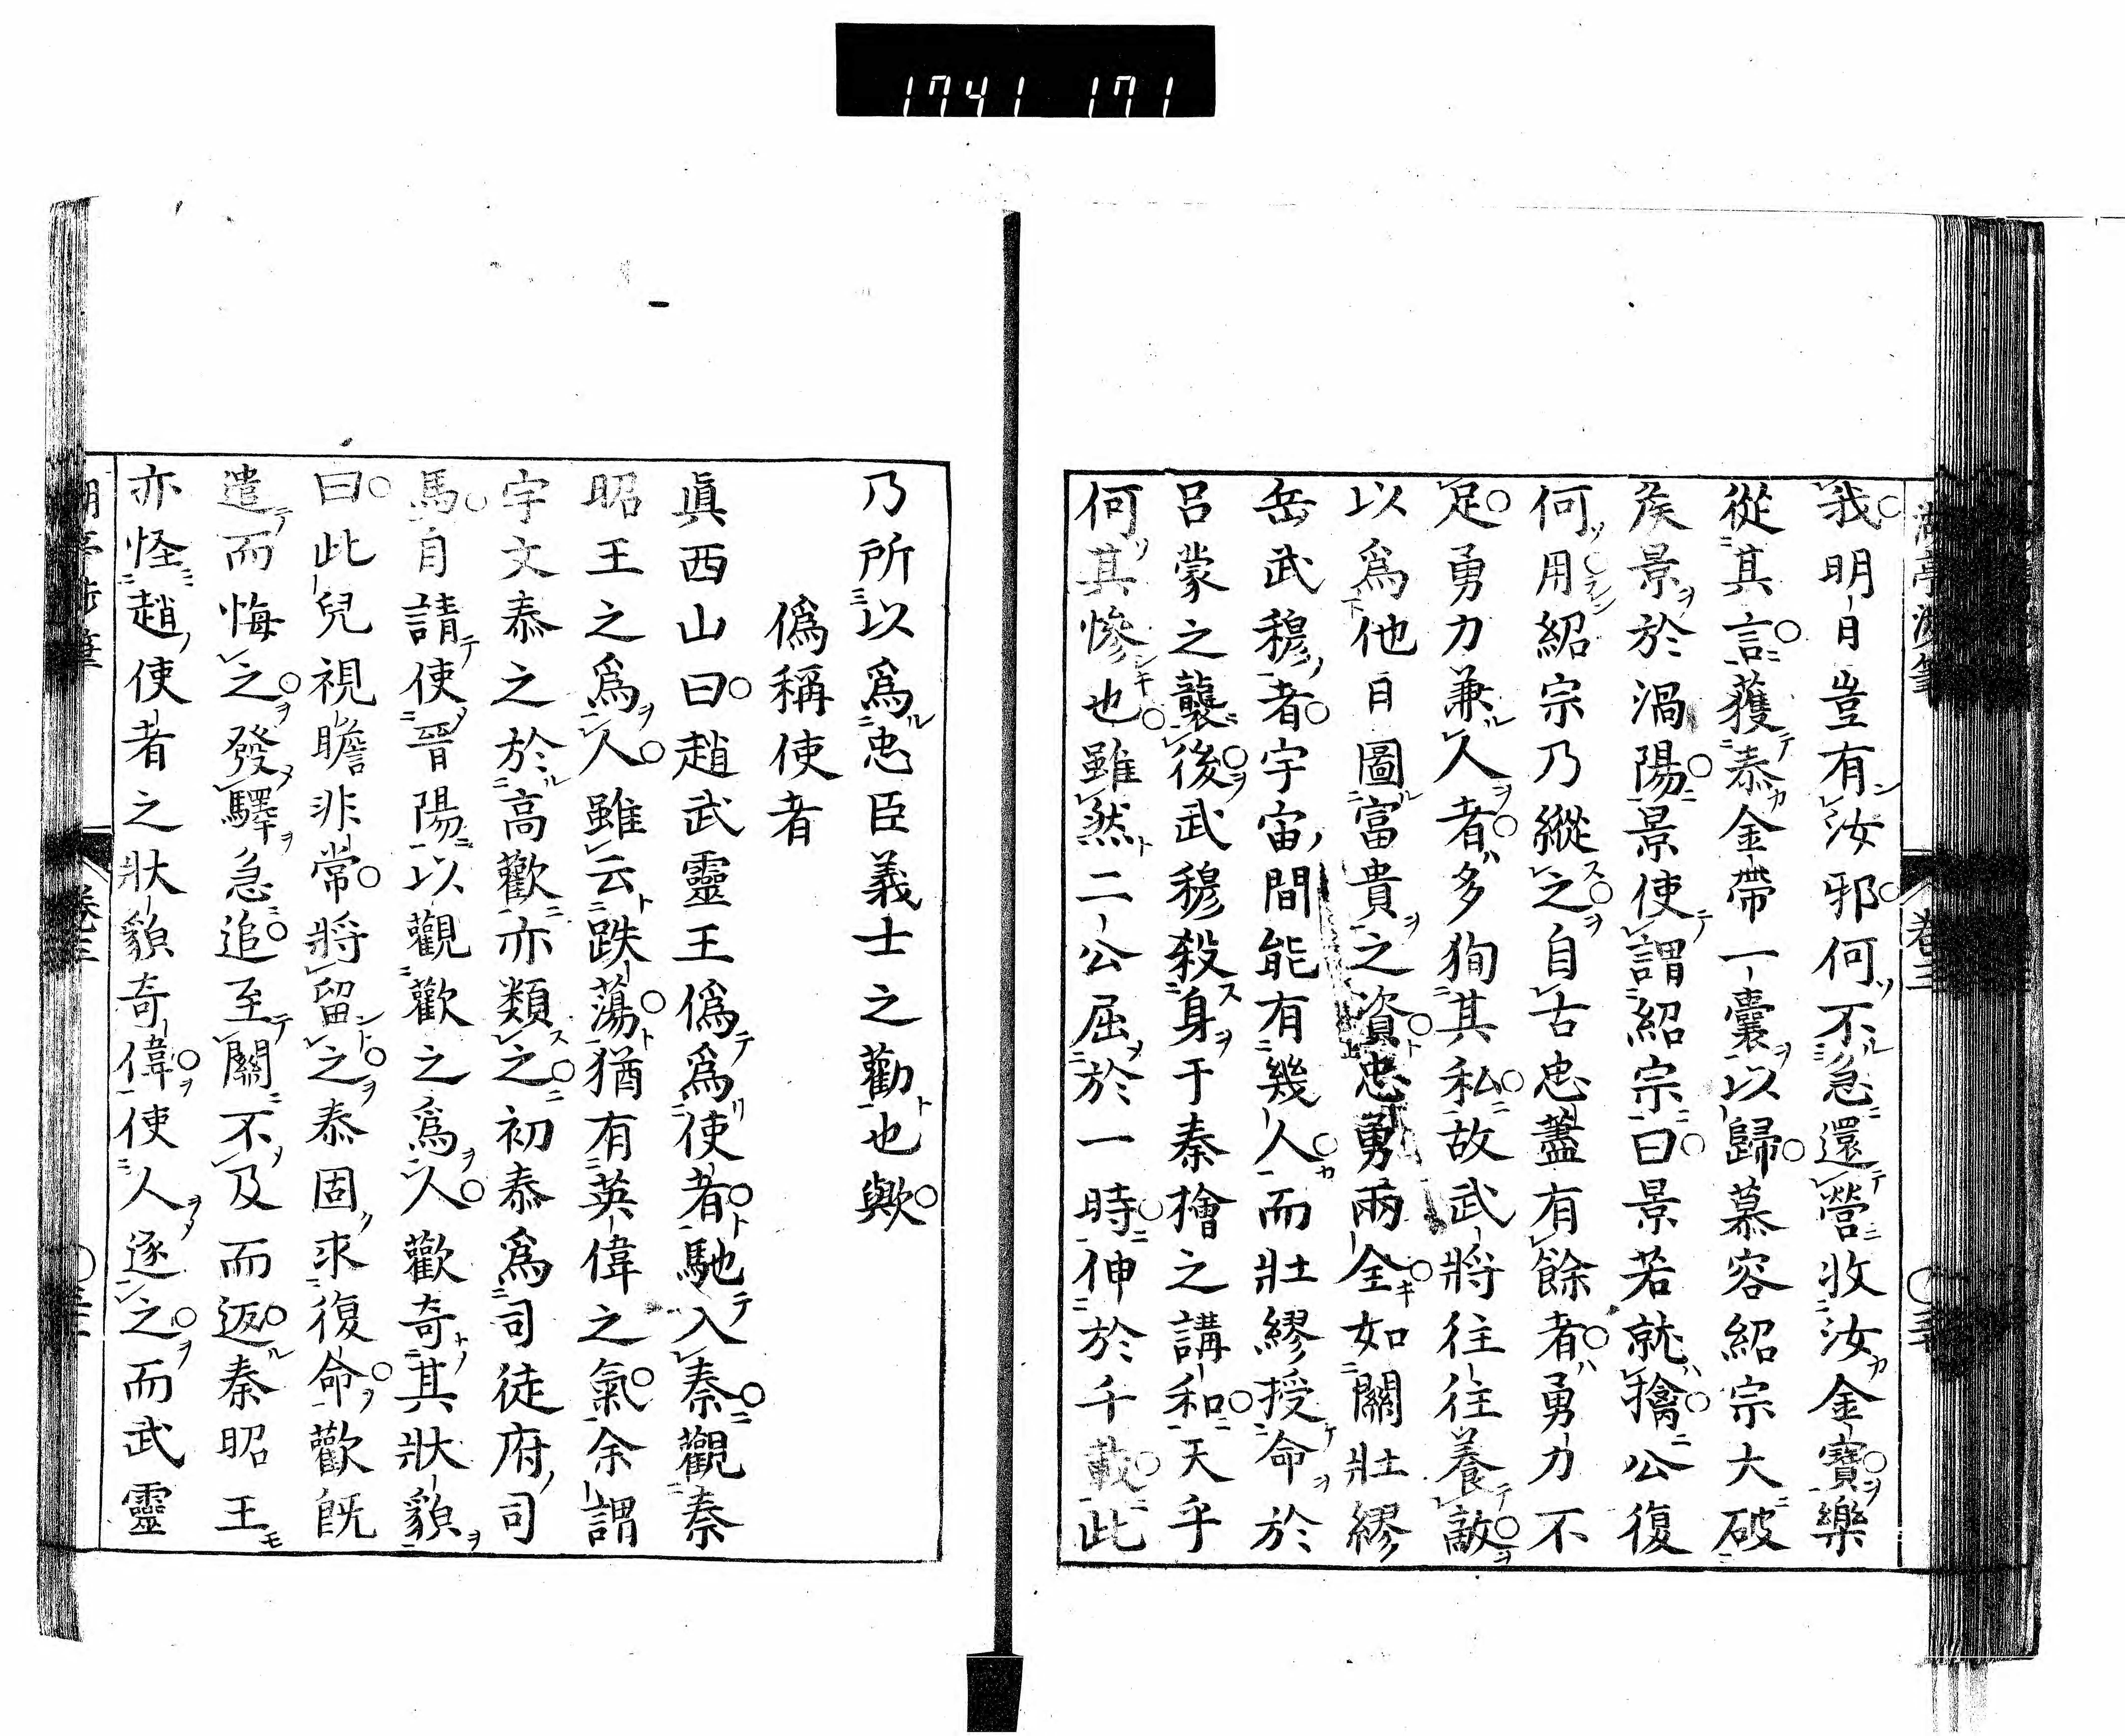 1741 171
我明日豈有汝邪何不急還營收汝金寶樂
從其言獲泰金帶一囊以歸慕容紹宗大破
矦景於渦陽景使謂紹宗曰景若就擒公復
何用紹宗乃縱之自古忠藎有餘者勇力不
足勇力兼人者多狥其私故武將往往養敵
以爲他日圖富貴之資忠勇兩全如關壯繆
岳武穆者宇宙間能有幾人而壯繆授命於
呂蒙之襲後武穆殺身于秦檜之講和天乎
何其慘也雖然二公屈於一時伸於千載此
乃所以爲忠臣義士之勸也歟
僞稱使者
眞西山曰趙武靈王僞爲使者馳入秦觀秦
昭王之爲人雖云跌蕩猶有英偉之氣余謂
宇文泰之於高歡亦類之初泰爲司徒府司
馬自請使晉陽以觀歡之爲人歡奇其狀貌
曰此兒視瞻非常將留之泰固求復命歡旣
遣而悔之發驛急追至關不及而返秦昭王
亦怪趙使者之狀貌奇偉使人逐之而武靈